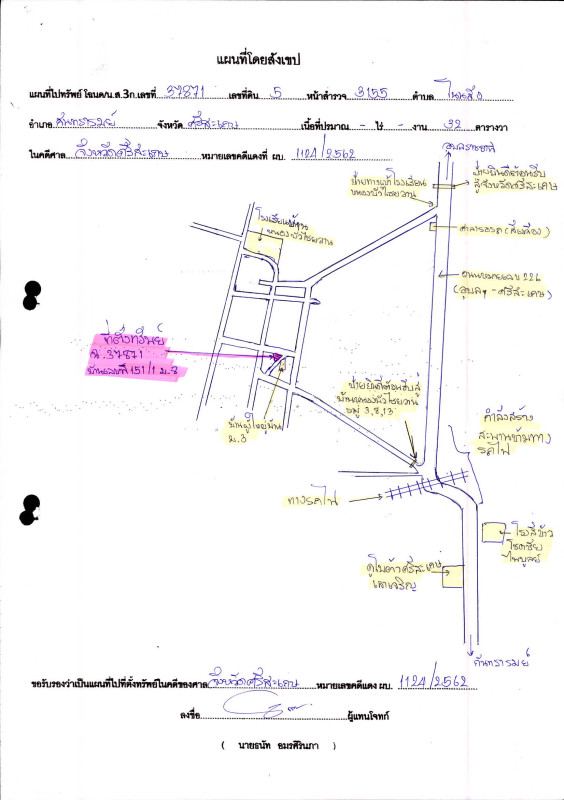 แผนที่โดยสังเขป
แผนที่ไปทรัพย์ โฉนด/น.ส.3ก.เลขที่ 37871 เลขที่ดิน 5 หน้าสำรวจ 3155 ตำบล
อำเภอ กันทรารมย์ จังหวัด ศรีสะเกษ เนื้อที่ประมาณ - ไร่ - งาน 32 ตารางวา
ในคดีศาล จังหวัดศรีสะเกษ หมายเลขคดีแดงที่ ผบ. 1124/2562
อุบลราชธานี
ป้ายยินดีต้อนรับ
สู่จังหวัดศรีสะเกษ
ป้ายทางเข้าโรงเรียน
หนองบัวไชยวาน
ศาลารอรถ (สีเหลือง)
โรงเรียนบ้าน
หนองบัวไชยวาน
ถนนหมายเลข 226
(อุบลฯ - ศรีสะเกษ)
ที่ตั้งทรัพย์
ฉ.37871
บ้านเลขที่ 151/1 ม.3
บ้านผู้ใหญ่บ้าน
ม.3
ป้ายยินดีต้อนรับสู่
บ้านหนองบัวไชยวาน
หมู่ 3,8,13
กำลังสร้าง
สะพานข้ามทาง
รถไฟ
ทางรถไฟ
โรงสีข้าว
โชคชัย
ไพบูลย์
คูโบต้าศรีสะเกษ
เลาเจริญ
กันทรารมย์
ขอรับรองว่าเป็นแผนที่ไปที่ตั้งทรัพย์ในคดีของศาล จังหวัดศรีสะเกษ หมายเลขคดีแดง ผบ. 1124/2562
ลงชื่อ ผู้แทนโจทก์
( นายธนัท อมรศิรินภา )